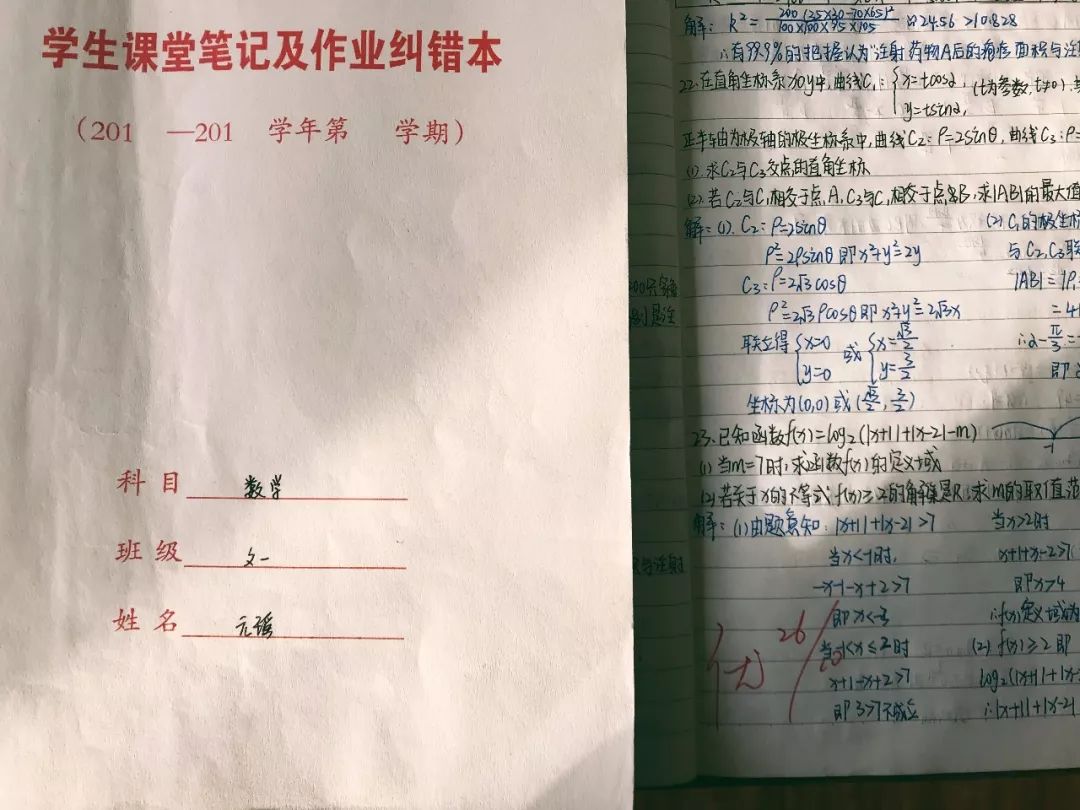 学生课堂笔记及作业纠错本
(201 —201 学年第 学期)
科目 数学
班级 文一
姓名 元瑶
解: K²= 200(25×30-70×65)² / 100×100×95×105 ≈24.56>10.828
∴有99.9%的把握认为"注射药物A后的疱疹面积与注
22.在直角坐标系xoy中,曲线C₁:{x=tcosα, y=tsinα, (t为参数,t≠0).
正半轴为极轴的极坐标系中,曲线C₂:ρ=2sinθ,曲线C₃:ρ=
(1).求C₂与C₃交点的直角坐标
(2).若C₂与C₁相交于点A,C₃与C₁相交于点B,求|AB|的最大值
解:(1). C₂:ρ=2sinθ
ρ²=2ρsinθ即x²+y²=2y
C₃:ρ=2√3cosθ
ρ²=2√3ρcosθ即x²+y²=2√3x
联立得{x=0 y=0 或{x=√3/2 y=3/2
坐标为(0,0)或(√3/2,3/2)
(2) C₁的极坐标
与C₂,C₃联
|AB|=|ρ₁
=4|
∴α-π/3=
即
23.已知函数f(x)=log₂(|x+1|+|x-2|-m)
-1
(1)当m=7时,求函数f(x)的定义域
(2)若关于x的不等式f(x)≥2的解集是R,求m的取值范
解:(1)由题意知:|x+1|+|x-2|>7
当x<-1时,
-x-1-x+2>7
即x<-3
当-1<x≤2时
x+1-x+2>7
即3>7不成立
当x>2时
x+1+x-2>7
即x>4
∴f(x)定义域为
(2) f(x)≥2即
log₂(|x+1|+|x-
∴|x+1|+|x-2|
优 26/10